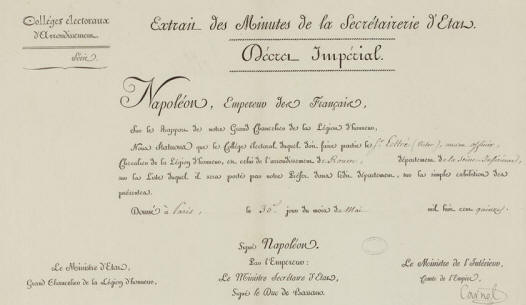 Collèges électoraux
d'Arrondissement.
Série.
Extrait des Minutes de la Secrétairerie d'Etat.
Décret Impérial.
Napoléon, Empereur des Français,
Sur le Rapport de notre Grand Chancelier de la Légion d'honneur,
Nous Statuons que le Collège électoral duquel doit faire partie le Sr. (Victor), ancien officier,
Chevalier de la Légion d'honneur, est celui de l'arrondissement de Rouen, département de la Seine-Inférieure,
sur la Liste duquel il sera porté par notre Préfet dans ledit département, sur la simple exhibition des
présentes.
Donné à Paris, le 30e. jour du mois de Mai mil huit cent quinze.
Signé Napoléon.
Par l'Empereur:
Le Ministre Secrétaire d'Etat,
Signé le Duc de Bassano.
Le Ministre d'Etat,
Grand Chancelier de la Légion d'honneur,
Le Ministre de l'Intérieur,
Comte de l'Empire,
Carnot